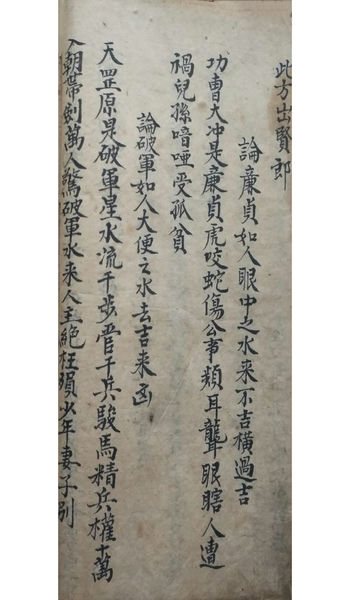 此方出賢郎
論廉貞如人眼中之水来不吉橫過吉
功曹大冲是廉貞虎咬蛇傷公事類耳聾眼瞎人遭
禍兒孫喑啞受孤貧
論破軍如人大便之水去吉来凶
天罡原是破軍星水流千步管千兵駿馬精兵權十萬
入朝帶劍萬人驚破軍水来人主絕枉殞少年妻子別